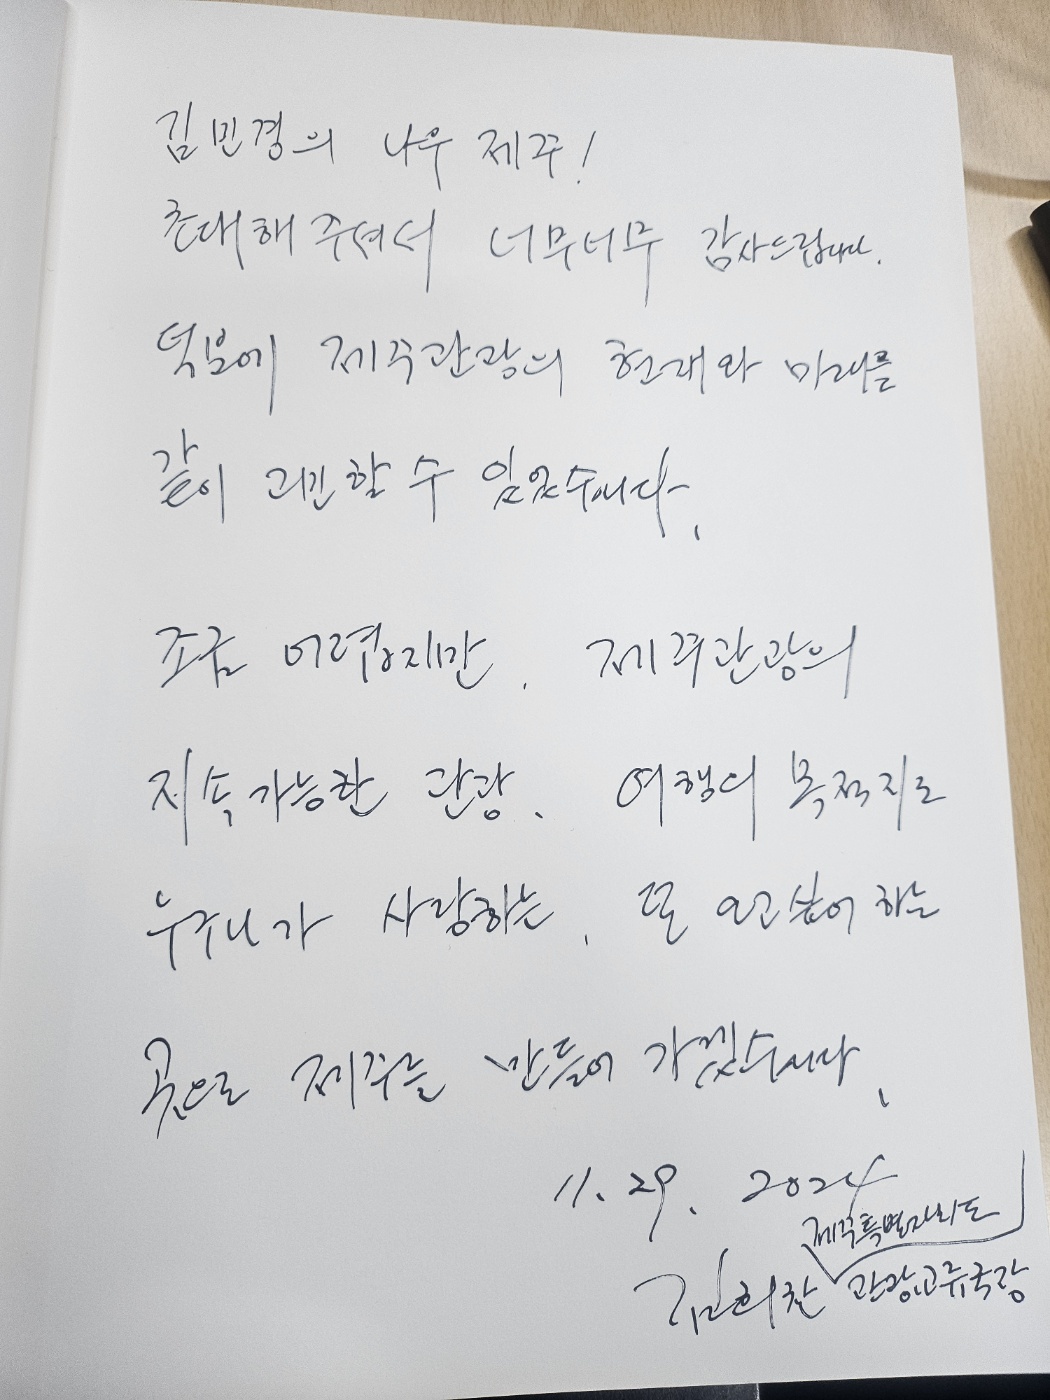 김민경의 나우 제주!
초대해 주셔서 너무너무 감사드립니다.
덕분에 제주관광의 현재와 미래를
같이 고민할 수 있었습니다.
조금 어렵지만, 제주관광의
지속가능한 관광, 여행의 목적지로
누구나가 사랑하는, 또 오고 싶어 하는
곳으로 제주를 만들어 가겠습니다.
11. 29. 2024
제주특별자치도
김희찬 관광교류국장